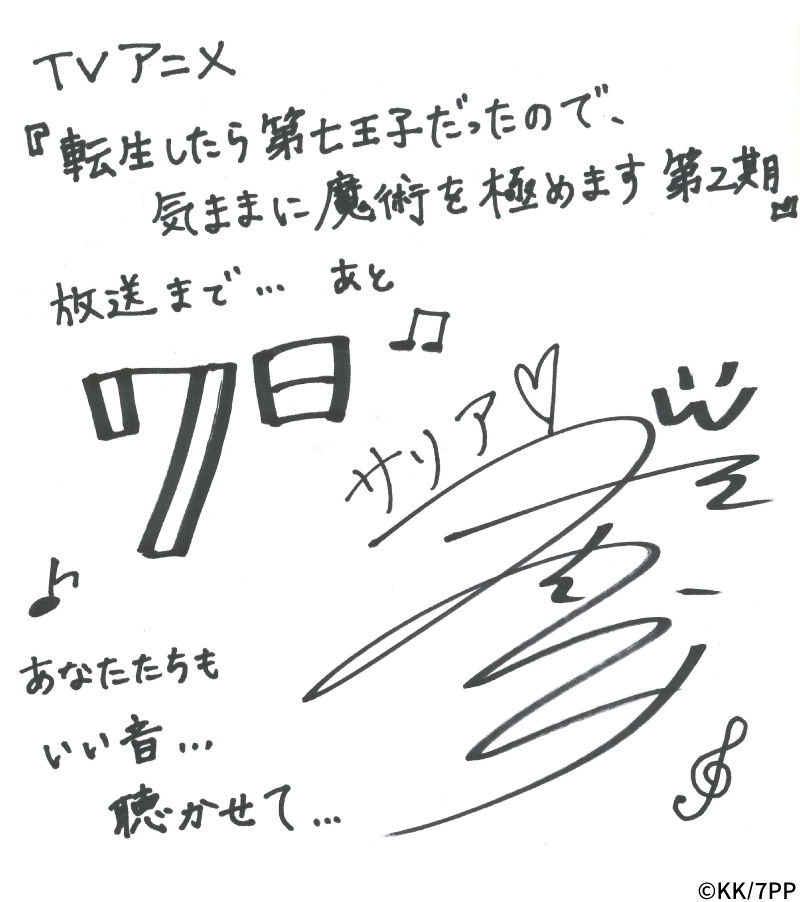 TVアニメ
『転生したら第七王子だったので、
気ままに魔術を極めます 第2期』
放送まで… あと
7日
サリア
あなたたちも
いい音…
聴かせて…
©KK/7PP